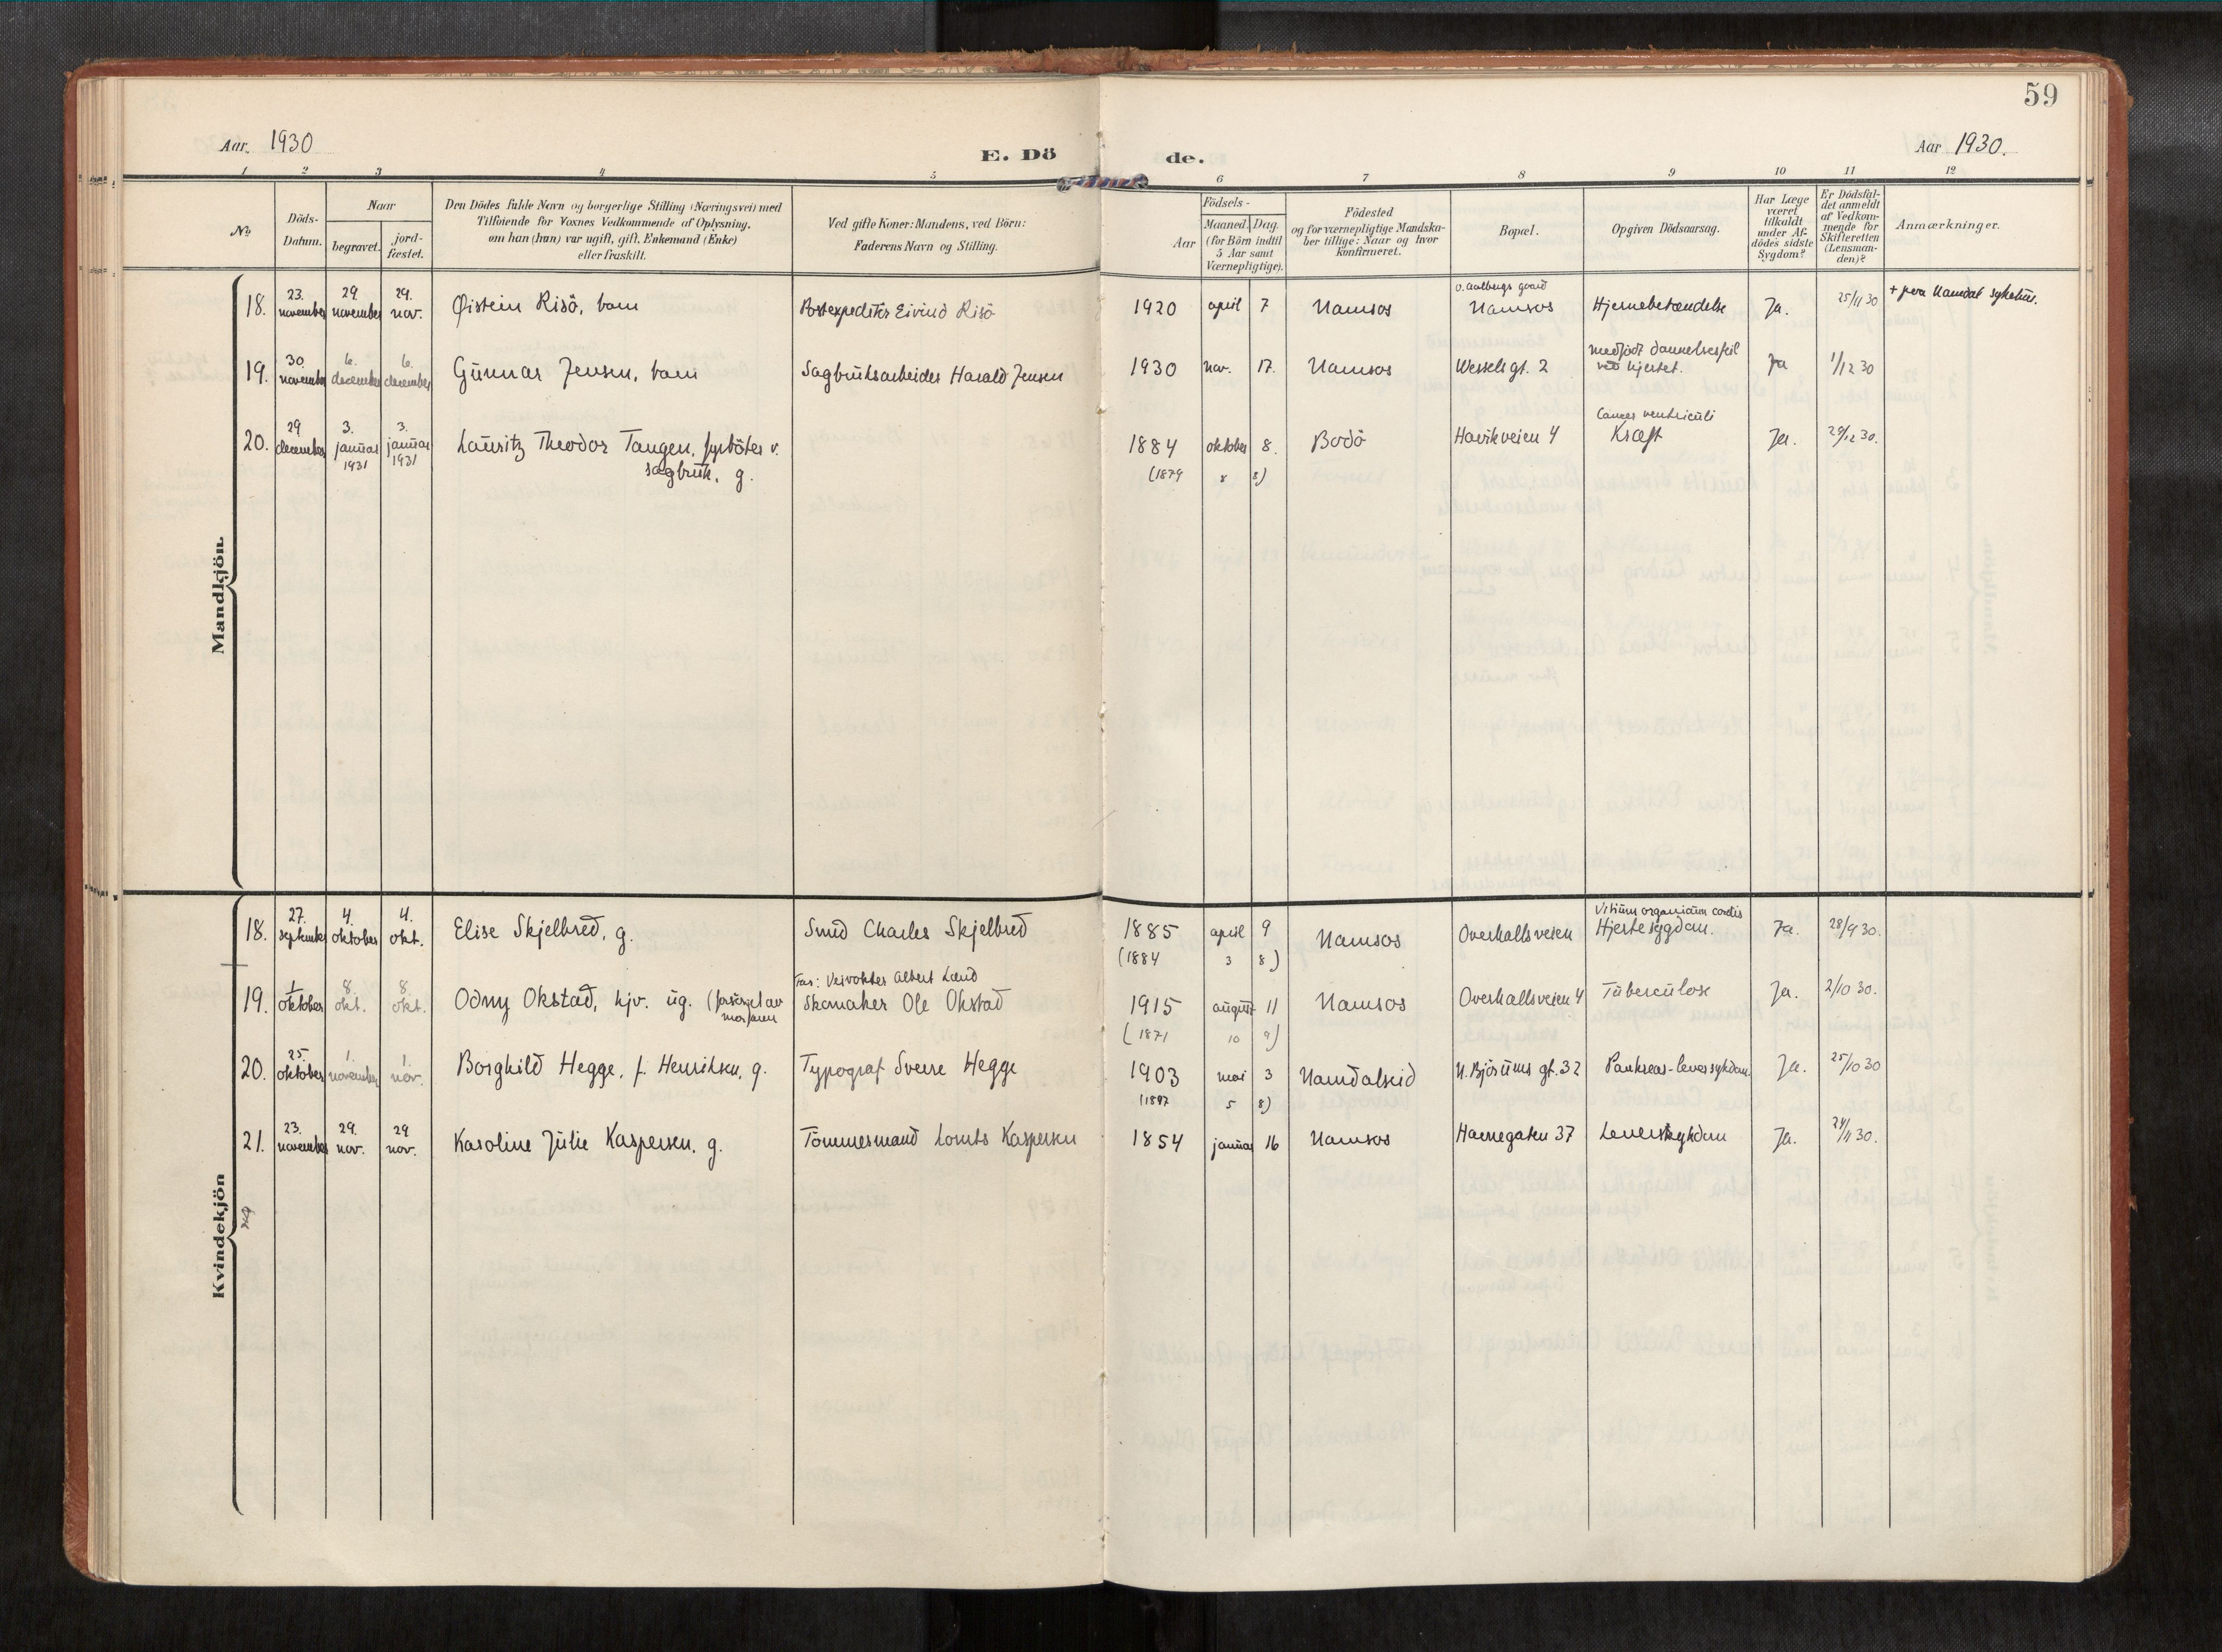 59
Aar. 1930
E. Dö
de.
Aar 1930.
1 2 3 4 5 6 7 8 9 10 11 12
No.
Döds-
Datum.
Naar
begravet.
jord-
fæstet.
Den Dödes fulde Navn og borgerlige Stilling (Næringsvei) med
Tilföiende for Voxnes Vedkommende af Oplysning,
om han (hun) var ugift, gift, Enkemand (Enke)
eller fraskilt.
Ved gifte Koner: Mandens, ved Börn:
Faderens Navn og Stilling.
Födsels-
Aar
Maaned. Dag.
(for Börn indtil
5 Aar samt
Værnepligtige).
Födested
og for værnepligtige Mandska-
ber tillige: Naar og hvor
konfirmeret.
Bopæl.
Opgiven Dödsaarsag.
Har Læge
været
tilkaldt
under Af-
dödes sidste
Sygdom?
Er Dödsfal-
det anmeldt
af Vedkom-
mende for
Skifteretten
(Lensman-
den)?
Anmærkninger.
Mandkjön.
18. 23. november 29. november 29. nov. Øistein Risö, barn Postexpeditör Eivind Risö 1920 april 7 Namsos o. Aalbergs gaard Namsos Hjernebetændelse Ja. 25/11 30 + paa Namdal sykehus.
19. 30. november 6. december 6. december Gunnar Jensen, barn Sagbruksarbeider Harald Jensen 1930 nov. 17. Namsos Wessels gt. 2 medfödt dannelsesfeil ved hjertet. Ja 1/12 30
20. 29 december 3. januar 1931 3. januar 1931 Lauritz Theodor Tangen, fyrböter v. sagbruk, g. 1884 oktober 8. Bodö Havikveien 4 Cancer ventriculi Kræft Ja. 29/12 30.
(1879 8 8)
Kvindekjön
18. 27. september 4. oktober 4. okt. Elise Skjelbred, g. Smed Charles Skjelbred 1885 april 9 Namsos Overhallsveien Vitium organicum cordis Hjertesygdom. Ja. 28/9 30.
(1884 3 8)
19. 1 oktober 8. okt. 8. okt. Odny Okstad, hjv. ug. (forsörget av morfaren Far: Veivokter Albert Lund Skomaker Ole Okstad 1915 august 11 Namsos Overhallsveien 4 Tuberculose Ja. 2/10 30.
(1871 10 9)
20. 25. oktober 1. november 1. nov. Borghild Hegge, f. Henriksen, g. Typograf Sverre Hegge 1903 mai 3 Namdalseid N. Bjørums gt. 32 Pankreas-leversykdom. Ja. 25/10 30
(1897 5 8)
21. 23. november 29. nov. 29 nov. Karoline Julie Kaspersen, g. Tömmermand Lorents Kaspersen 1854 januar 16 Namsos Havnegaten 37 Leversykdom Ja. 24/11 30.